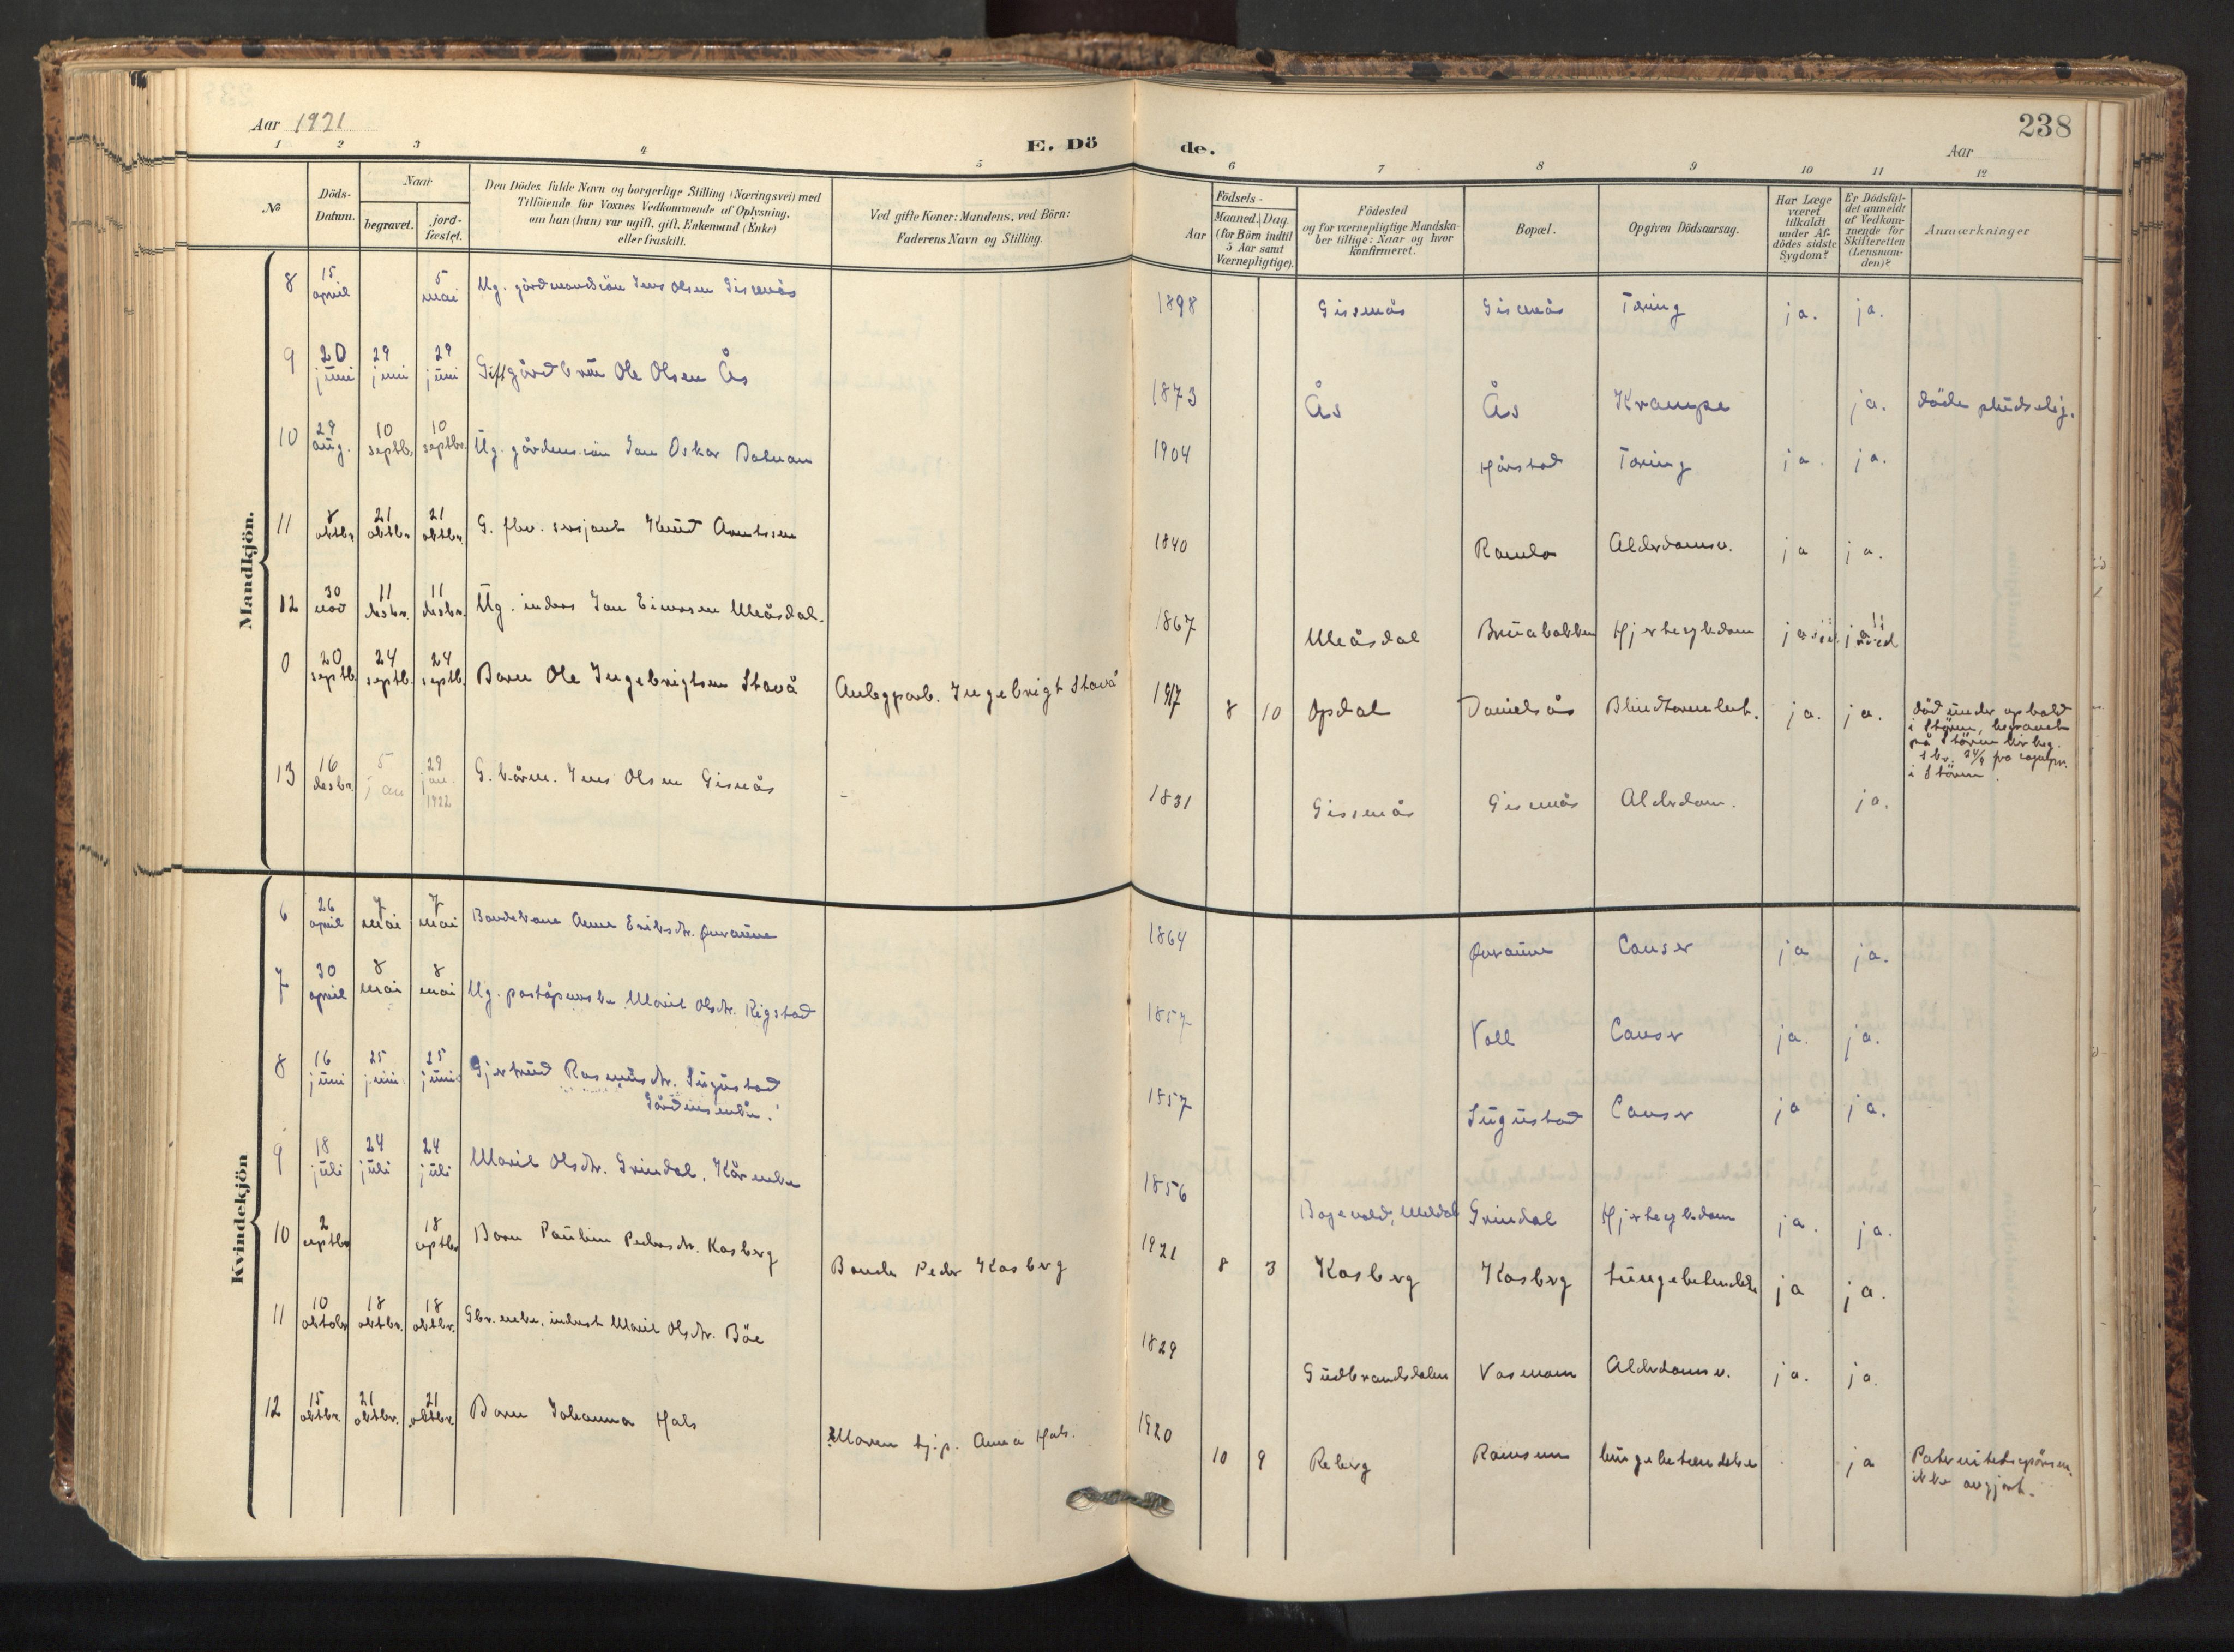 238
Aar 1921
E. Dö de.
Aar
1 2 3 4 5 6 7 8 9 10 11 12
No
Döds-
Datum.
Naar
begravet.
jord-
fæstet.
Den Dödes fulde Navn og borgerlige Stilling (Næringsvei) med
Tilföiende for Voxnes Vedkommende af Oplysning,
om han (hun) var ugift, gift, Enkemand (Enke)
eller fraskilt.
Ved gifte Koner: Mandens, ved Börn:
Faderens Navn og Stilling.
Födsels-
Aar
Maaned. Dag.
(for Börn indtil
5 Aar samt
Værnepligtige).
Födested
og for værnepligtige Mandska-
ber tillige: Naar og hvor
konfirmeret.
Bopæl.
Opgiven Dödsaarsag.
Har Læge
været
tilkaldt
under Af-
dödes sidste
Sygdom?
Er Dödsfal-
det anmeldt
af Vedkom-
mende for
Skifteretten
(Lensman-
den)?
Anmærkninger
Mandkjön.
8 15 april 5 mai Ug. gårdmandssön Jens Olsen Gismås 1898 Gissmås Gismås Tæring ja. ja.
9 20 juni 29 juni 29 juni Gift gårdbr. Ole Olsen Ås 1873 Ås Ås Krampe ja. döde pludselig.
10 29 aug. 10 septb. 10 septbr. Ug. gårdm.sön Jon Oskar 1904 Hårstad Tæring ja. ja.
11 8 oktbr. 21 oktbr. 21 oktbr. G. fhv. sersjant Knud Arntsen 1840 Ramlo Alderdomsv. ja ja.
12 30 nov 11 desbr. 11 desbr. Ug. inders Jon Einarsen Uleåsdal. 1867 Uleåsdal Bruabakken Hjertesykdom
0 20 septb. 24 septb. 24 septb. Barn Ole Ingebrigtsen Stavå Anlegparb. Ingebrigt Stavå 1917 8 10 Opdal Danielsås Blindtarmbet. ja. ja. död under ophold
i Stören, begravet
på Stören kirkeg.
24/9 fra sognepr.
i Stören.
13 16 desbr. 5 jan 29 jan. 1922 G. kårm. Jens Olsen Gismås 1831 Gissmås Gismås Alderdom. ja.
Kvindekjön
6 26 april 7 mai 7 mai Bondekone Anne Eriksdtr. 1864 Canser ja ja.
7 30 april 8 mai 8 mai Ug. poståpnerske Marit Olsdtr. Rigstad 1857 Voll Canser ja. ja.
8 16 juni 25 juni 25 juni Gjertrud Rasmusdtr. Sugustad
Gårdmenke. 1857 Sugustad Canser ja ja.
9 18 juli 24 juli 24 juli Marit Olsdtr. Grindal. Kårenke 1856 Meldal Grindal Hjertesykdom ja. ja.
10 2 septbr 18 septbr Barn Pauline Pedersdtr. Kosberg Bonde Peder Kosberg 1921 8 3 Kosberg Kosberg Lungebetændelse ja ja.
11 10 oktobr 18 oktbr. 18 oktbr. Gbr. enke, inderst Marit Olsdtr. Böe 1829 Gudbrandsdalen Vasmoen Alderdomsv. ja. ja.
12 15 oktbr. 21 oktbr. 21 oktbr. Barn Johanna Hals Moren tj.p. Anna Hals. 1920 10 9 Reberg Ramsem lungebetændelse ja Paternitetsspörsm.
ikke avgjort.